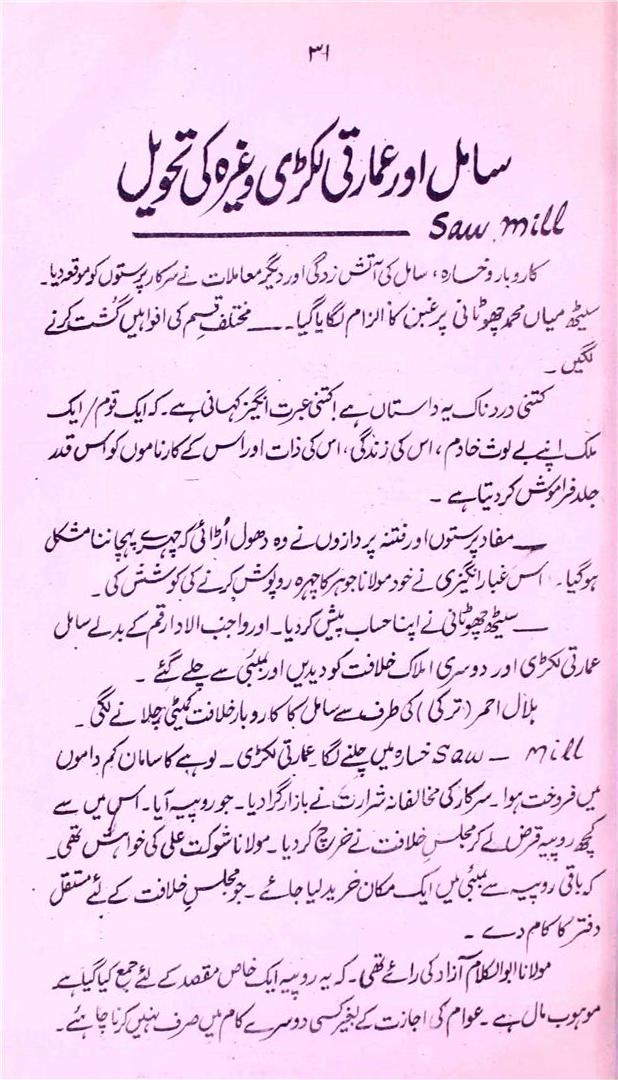 ۳۱
سامل اور عمارتی لکڑی وغیرہ کی تحویل
Saw mill
کاروبار و خسارہ، سامل کی آتش زدگی اور دیگر معاملات نے سرکار پرستوں کو موقعہ دیا۔
سیٹھ میاں محمد چھوٹانی پر غبن کا الزام لگایا گیا۔ ــــ مختلف قسم کی افواہیں گشت کرنے
لگیں ۔
کتنی دردناک یہ داستاں ہے! کتنی عبرت انگیز کہانی ہے۔ کہ ایک قوم / ایک
ملک اپنے بے لوث خادم، اس کی زندگی، اس کی ذات اور اس کے کارناموں کو اس قدر
جلد فراموش کر دیتا ہے ۔
ــــ مفاد پرستوں اور فتنہ پردازوں نے وہ دھول اُڑائی کہ چہرے پہچاننا مشکل
ہو گیا۔ اس غبار انگیزی نے خود مولانا جوہر کا چہرہ روپوش کرنے کی کوشش کی ۔
ــــ سیٹھ چھوٹانی نے اپنا حساب پیش کر دیا۔ اور واجب الادا رقم کے بدلے سامل
عمارتی لکڑی اور دوسری املاک خلافت کو دیدیں اور بمبئی سے چلے گئے ۔
ہلال احمر (ترکی) کی طرف سے سامل کا کاروبار خلافت کمیٹی چلانے لگی ۔
Saw – mill خسارہ میں چلنے لگا۔ عمارتی لکڑی ۔ لوہے کا سامان کم داموں
میں فروخت ہوا۔ سرکار کی مخالفانہ شرارت نے بازار گرا دیا۔ جو روپیہ آیا۔ اس میں سے
کچھ روپیہ قرض لے کر مجلس خلافت نے خرچ کر دیا۔ مولانا شوکت علی کی خواہش تھی۔
کہ باقی روپیہ سے بمبئی میں ایک مکان خرید لیا جائے ۔ جو مجلس خلافت کے لئے مستقل
دفتر کا کام دے ۔
مولانا ابوالکلام آزاد کی رائے تھی۔ کہ یہ روپیہ ایک خاص مقصد کے لئے جمع کیا گیا ہے
موہوب مال ہے ۔ عوام کی اجازت کے بغیر کسی دوسرے کام میں صرف نہیں کرنا چاہئے ۔